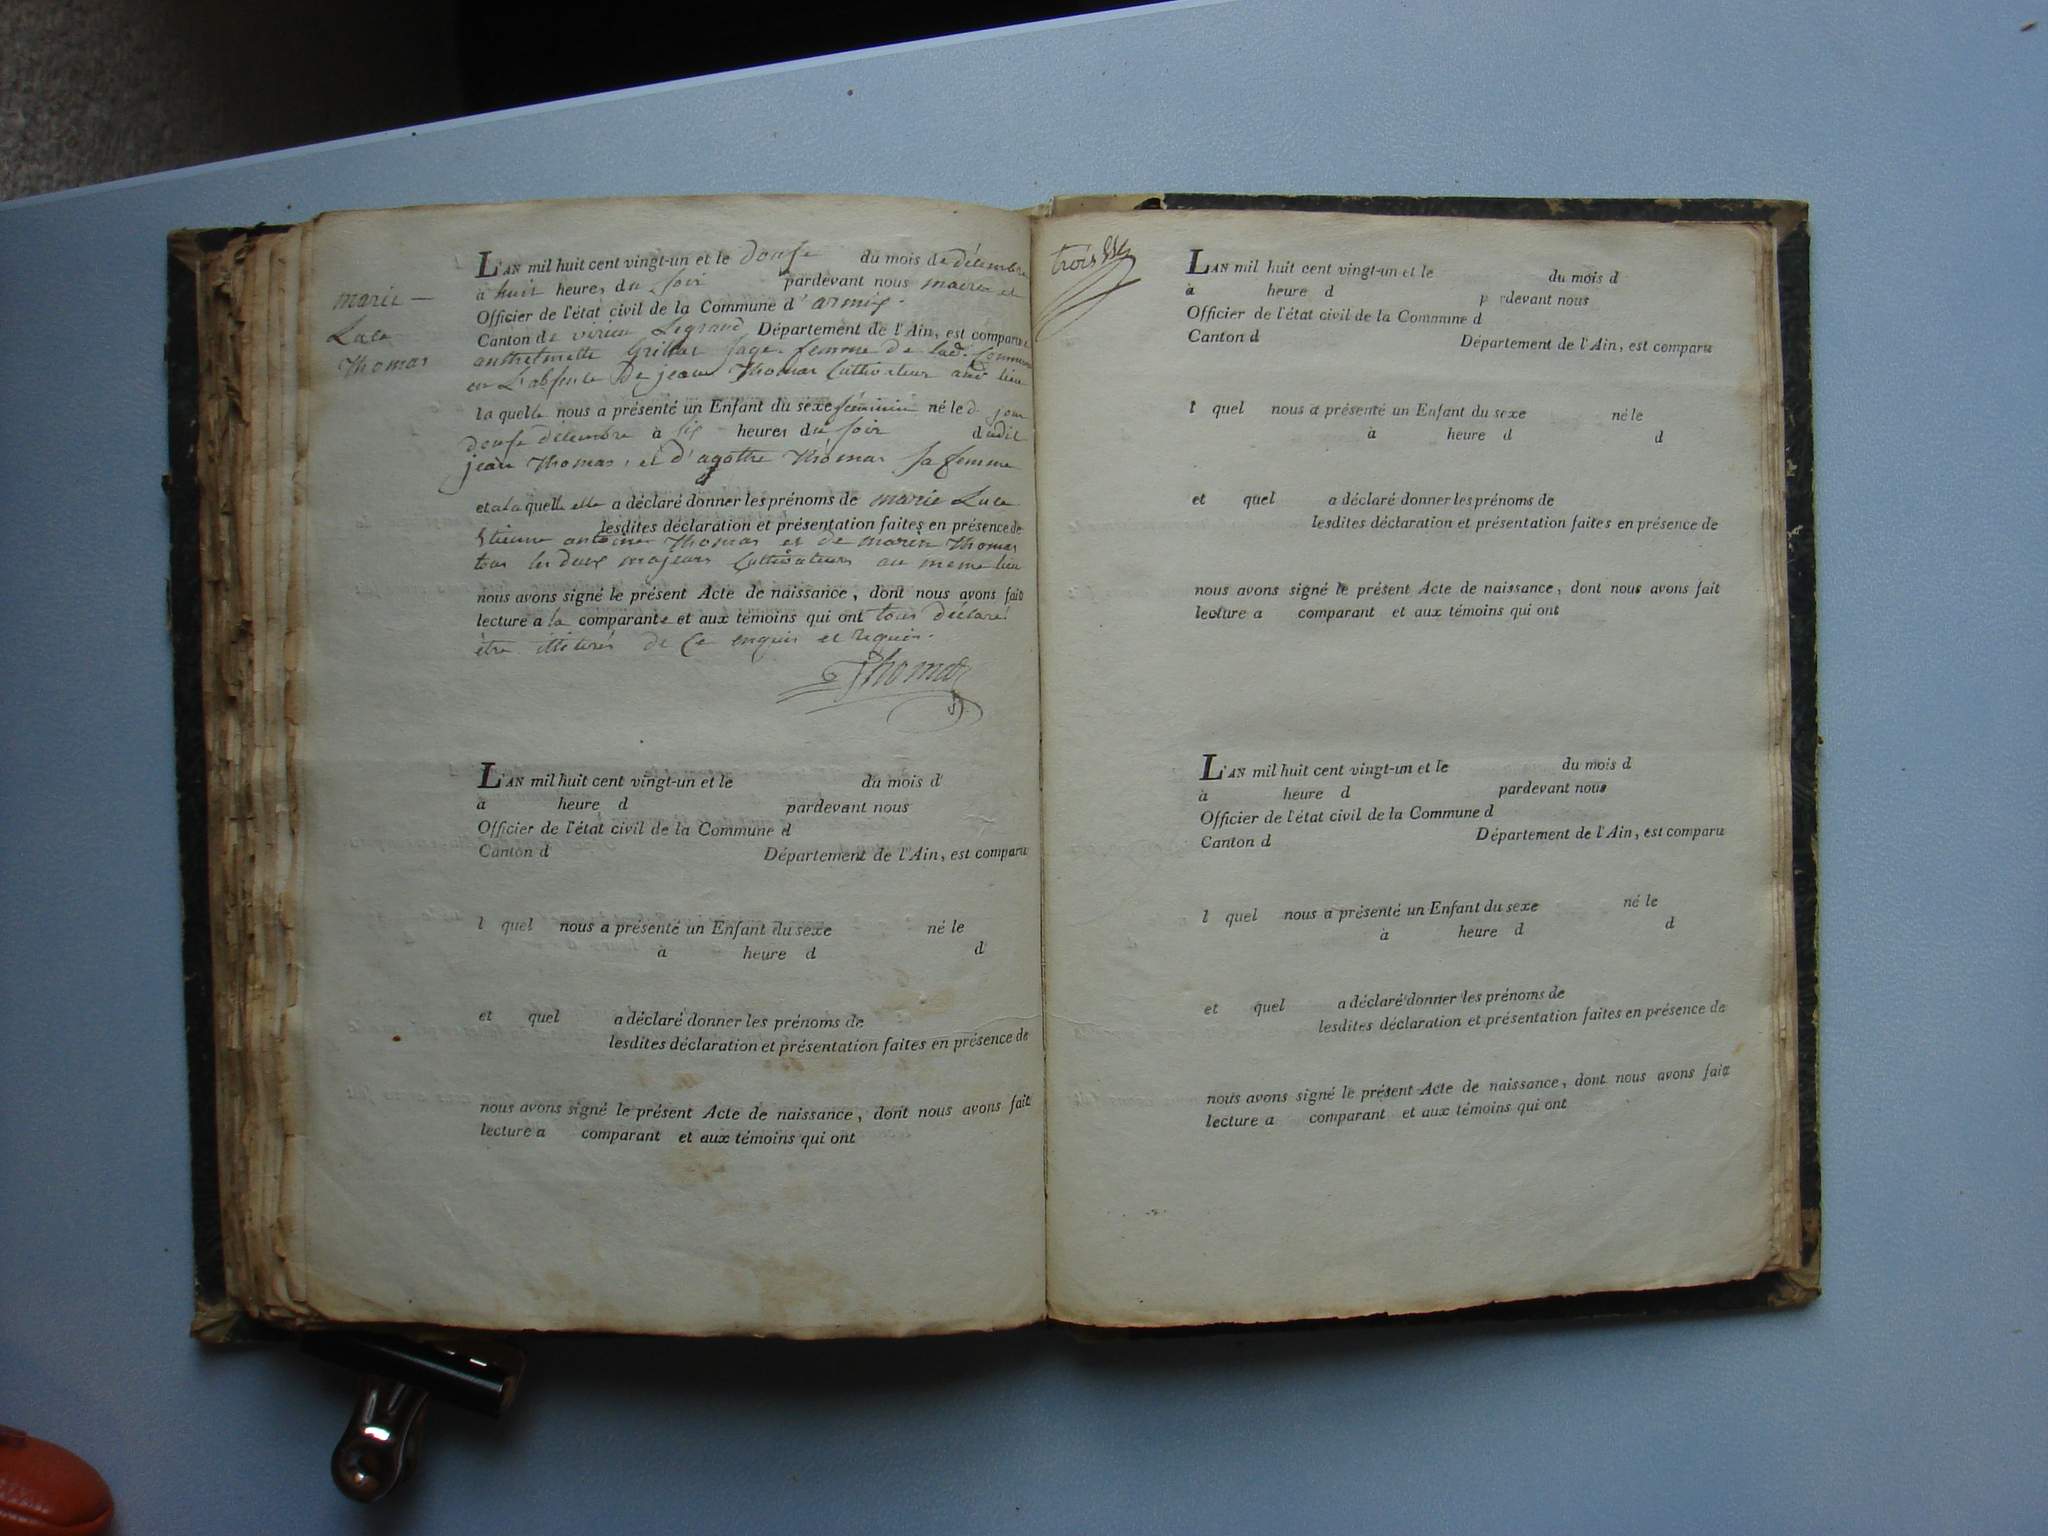 marie —
Luce
Thomas
L'AN mil huit cent vingt-un et le douse du mois de décembre
à huit heures du soir pardevant nous maire et
Officier de l'état civil de la Commune d'armix.
Canton de virieu Legrand Département de l'Ain, est comparue
anthelmette Grillat sage femme de lad. Commune
en L'absence De jean Thomas Cultivateur aud lieu
laquelle nous a présenté un Enfant du sexe féminin né le d. jour
douse décembre à six heures du soir dudit
jean Thomas, et d'agathe Thomas sa femme
et a laquelle elle a déclaré donner les prénoms de marie Luce
lesdites déclaration et présentation faites en présence de
Etienne antoine Thomas et de marin Thomas
tous les deux majeurs Cultivateurs au meme lieu
nous avons signé le présent Acte de naissance, dont nous avons fait
lecture a la comparante et aux témoins qui ont tous déclaré
être illiterés de Ce enquis et requis.
Thomas
L'AN mil huit cent vingt-un et le du mois d
à heure d pardevant nous
Officier de l'état civil de la Commune d
Canton d Département de l'Ain, est comparu
l quel nous a présenté un Enfant du sexe né le
à heure d d
et quel a déclaré donner les prénoms de
lesdites déclaration et présentation faites en présence de
nous avons signé le présent Acte de naissance, dont nous avons fait
lecture a comparant et aux témoins qui ont
trois
L'AN mil huit cent vingt-un et le du mois d
à heure d pardevant nous
Officier de l'état civil de la Commune d
Canton d Département de l'Ain, est comparu
l quel nous a présenté un Enfant du sexe né le
à heure d d
et quel a déclaré donner les prénoms de
lesdites déclaration et présentation faites en présence de
nous avons signé le présent Acte de naissance, dont nous avons fait
lecture a comparant et aux témoins qui ont
L'AN mil huit cent vingt-un et le du mois d
à heure d pardevant nous
Officier de l'état civil de la Commune d
Canton d Département de l'Ain, est comparu
l quel nous a présenté un Enfant du sexe né le
à heure d d
et quel a déclaré donner les prénoms de
lesdites déclaration et présentation faites en présence de
nous avons signé le présent Acte de naissance, dont nous avons fait
lecture a comparant et aux témoins qui ont